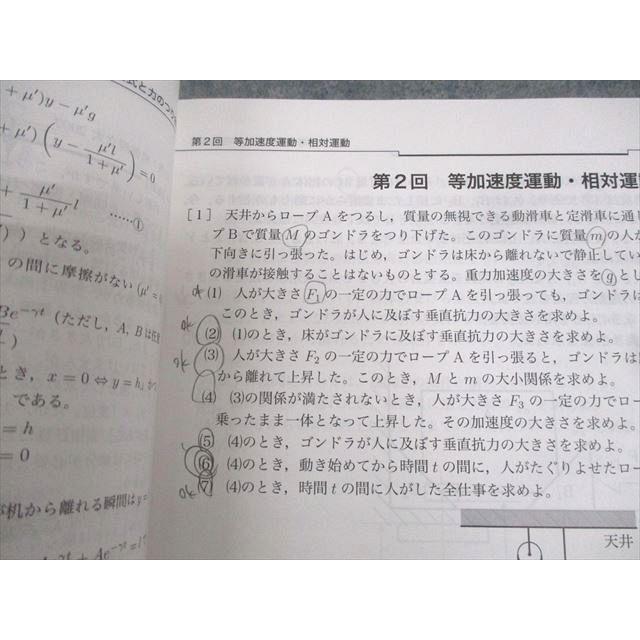 式と力のつり
+ μ')y − μ'g
+ μ') (y − μ'l / 1 + μ') = 0
+ μ' / 1 + μ' l ……①
) となる。
の間に摩擦がない (μ' =
Be^{−γt} (ただし, A, B は任
とき, x = 0 ⇔ y = h,
である。
= h
= 0
机から離れる瞬間は y =
Ae^{−γt} = l
第2回 等加速度運動・相対運動
第2回 等加速度運動・相対運
[1] 天井からロープ A をつるし, 質量の無視できる動滑車と定滑車に通
プ B で質量 M のゴンドラをつり下げた。このゴンドラに質量 m の人が
下向きに引っ張った。はじめ, ゴンドラは床から離れないで静止してい
の滑車が接触することはないものとする。重力加速度の大きさを g とし
ok (1) 人が大きさ F₁ の一定の力でロープ A を引っ張っても, ゴンドラは
このとき, ゴンドラが人に及ぼす垂直抗力の大きさを求めよ。
ok (2) (1)のとき, 床がゴンドラに及ぼす垂直抗力の大きさを求めよ。
ok (3) 人が大きさ F₂ の一定の力でロープ A を引っ張ると, ゴンドラは
から離れて上昇した。このとき, M と m の大小関係を求めよ。
(4) (3)の関係が満たされないとき, 人が大きさ F₃ の一定の力でロー
乗ったまま一体となって上昇した。その加速度の大きさを求めよ。
(5) (4)のとき, ゴンドラが人に及ぼす垂直抗力の大きさを求めよ。
(6) (4)のとき, 動き始めてから時間 t の間に, 人がたぐりよせたロー
ok (7) (4)のとき, 時間 t の間に人がした全仕事を求めよ。
天井